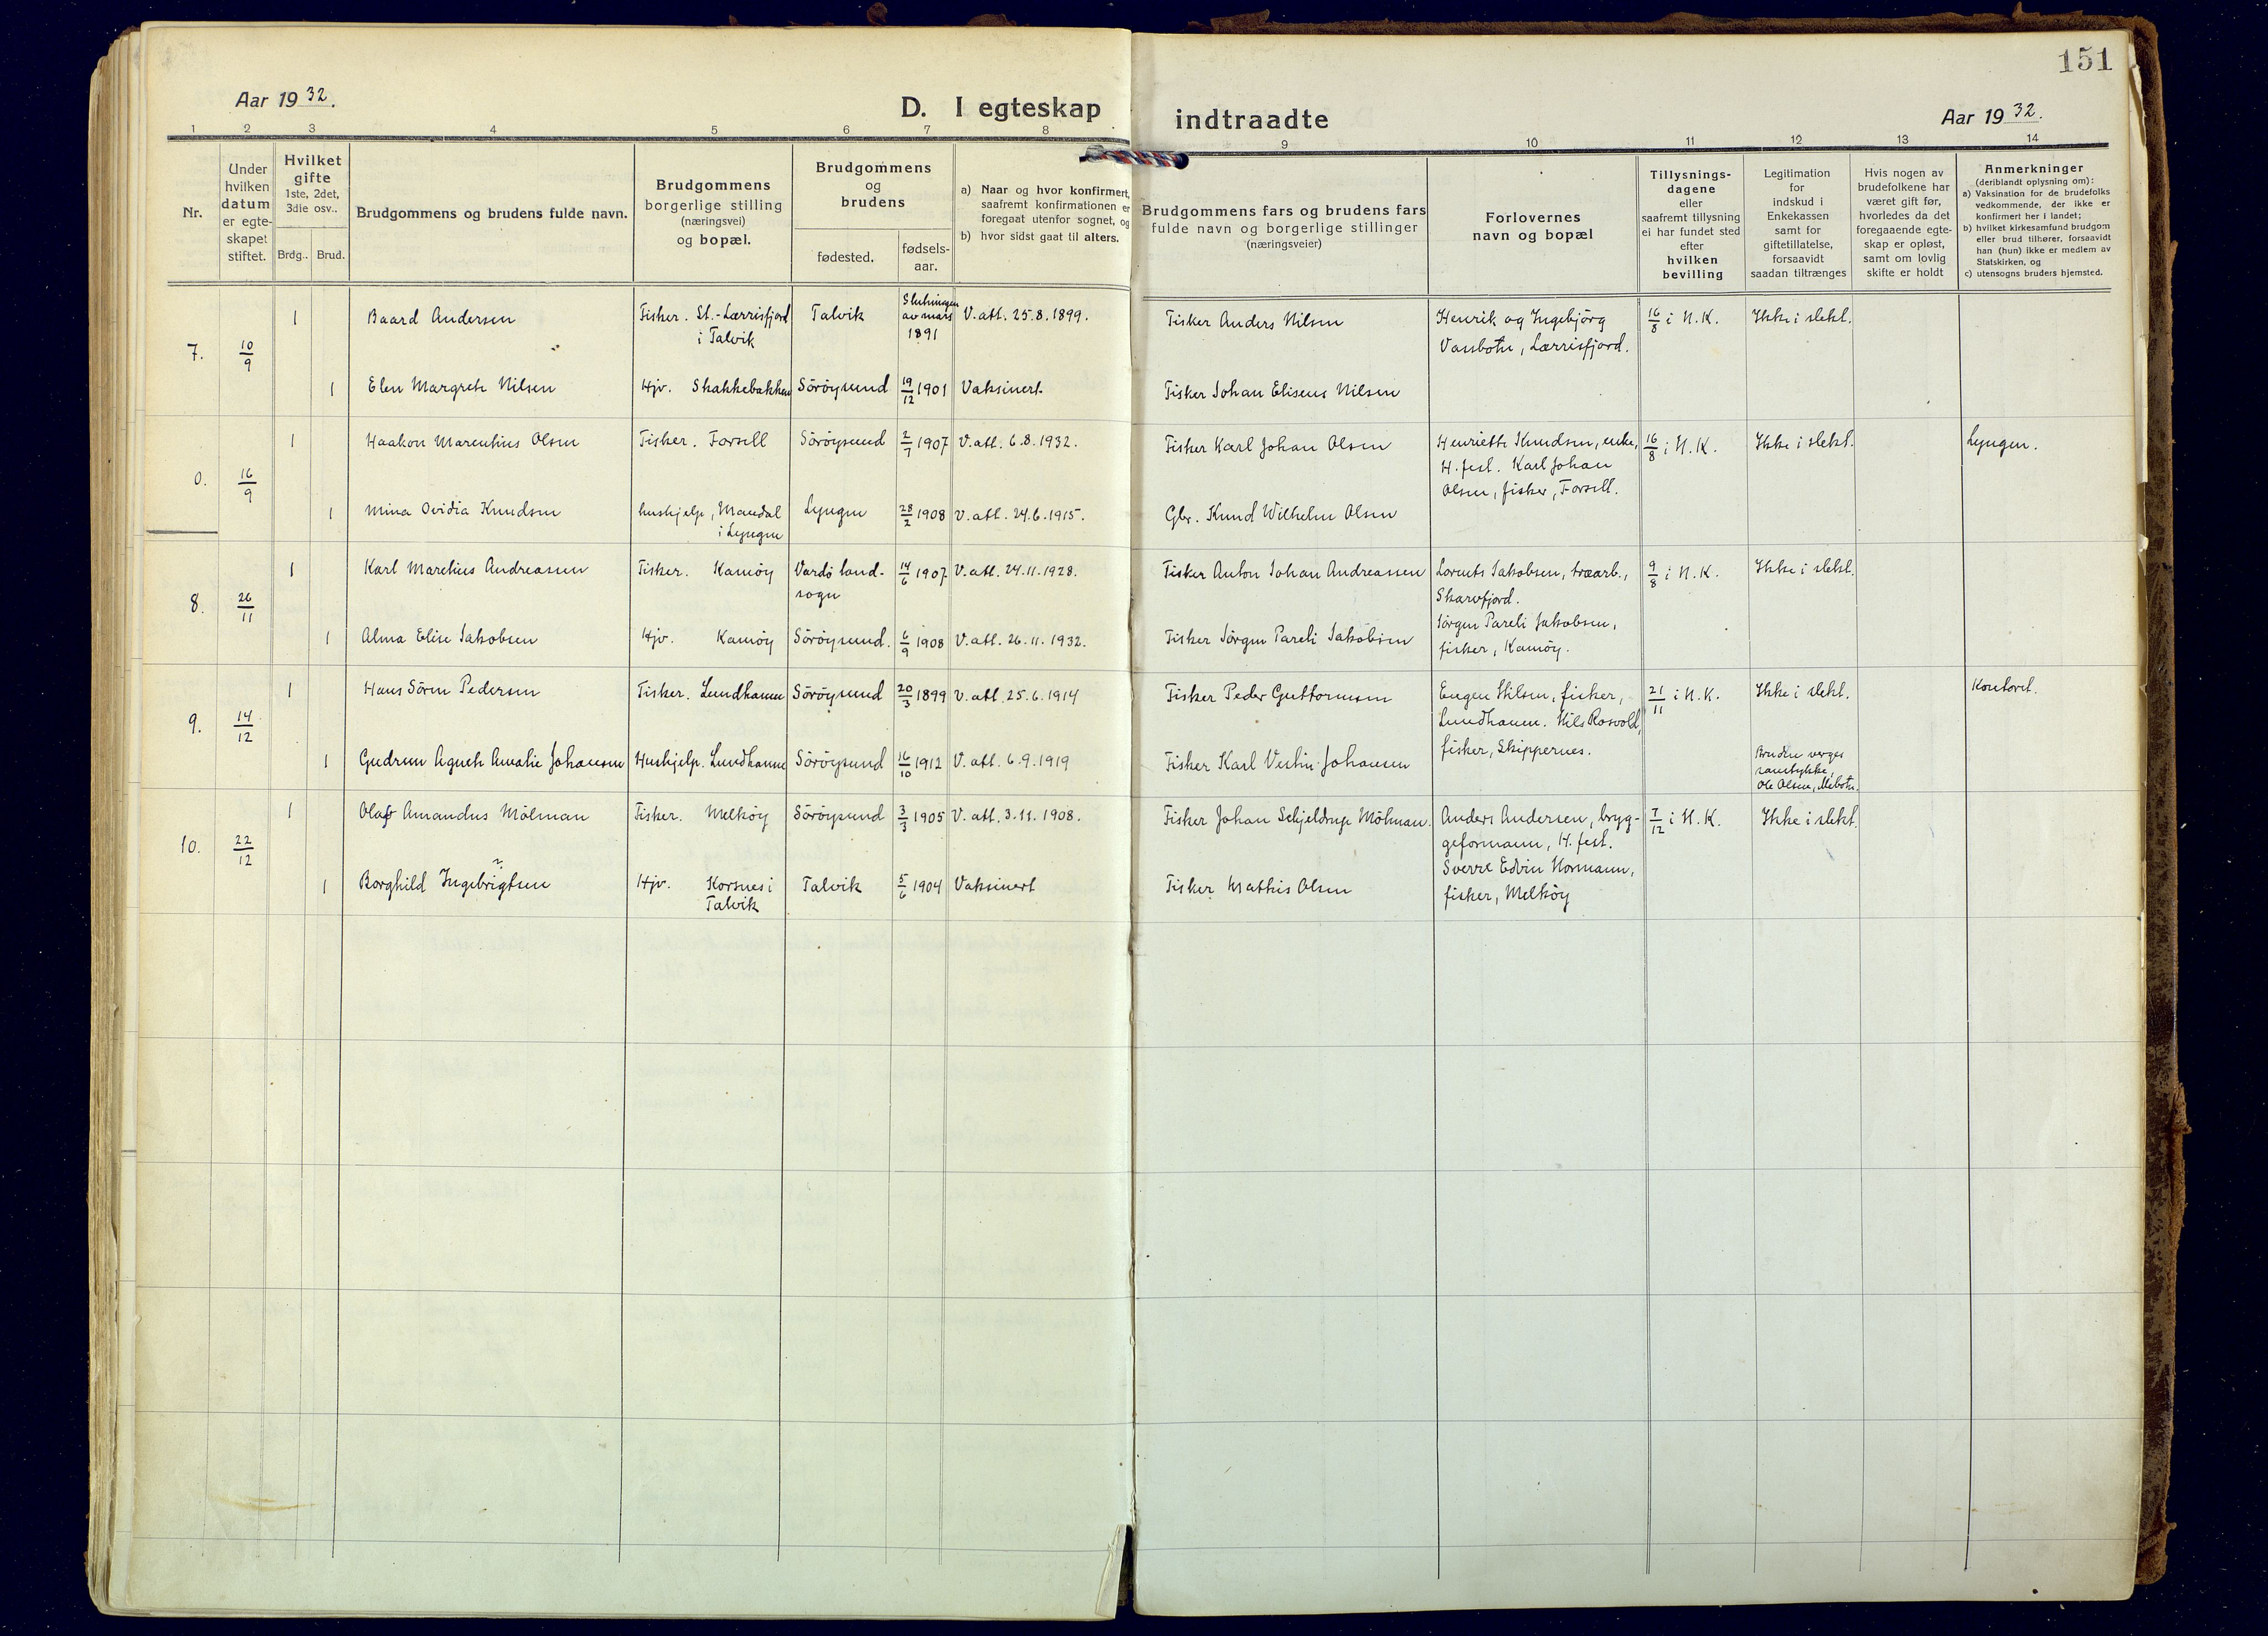 151
Aar 1932.
D. I egteskap indtraadte
Aar 1932.
1 2 3 4 5 6 7 8 9 10 11 12 13 14
Nr.
Under
hvilken
datum
er egte-
skapet
stiftet.
Hvilket
gifte
1ste, 2det,
3die osv..
Brdg.. Brud.
Brudgommens og brudens fulde navn.
Brudgommens
borgerlige stilling
(næringsvei)
og bopæl.
Brudgommens
og
brudens
fødested.
fødsels-
aar.
a) Naar og hvor konfirmert,
saafremt konfirmationen er
foregaat utenfor sognet, og
b) hvor sidst gaat til alters.
Brudgommens fars og brudens fars
fulde navn og borgerlige stillinger
(næringsveier)
Forlovernes
navn og bopæl
Tillysnings-
dagene
eller
saafremt tillysning
ei har fundet sted
efter
hvilken
bevilling
Legitimation
for
indskud i
Enkekassen
samt for
giftetillatelse,
forsaavidt
saadan tiltrænges
Hvis nogen av
brudefolkene har
været gift før,
hvorledes da det
foregaaende egte-
skap er opløst,
samt om lovlig
skifte er holdt
Anmerkninger
(deriblandt oplysning om):
a) Vaksination for de brudefolks
vedkommende, der ikke er
konfirmert her i landet;
b) hvilket kirkesamfund brudgom
eller brud tilhører, forsaavidt
han (hun) ikke er medlem av
Statskirken, og
c) utensogns bruders hjemsted.
7. 10/9
1 Baard Andersen
Fisker. St.-Lærrisfjord
i Talvik
Talvik
Slutningen
av mars
1891
V. att. 25.8.1899.
Fisker Anders Nilsen
Henrik og Ingebjörg
Vassbotn, Lærrisfjord.
16/8 i H.K.
Ikke i slekt.
1 Elen Margrete Nilsen
Hjv. Skakkebakken
Söröysund
19/12 1901
Vaksinert.
Fisker Johan Eliseus Nilsen
0. 16/9
1 Haakon Marentius Olsen
Fisker. Forsöl
Söröysund
2/7 1907
V. att. 6.8.1932.
Fisker Karl Johan Olsen
Henriette Knudsen, enke,
H.fest. Karl Johan
Olsen, fisker, Forsöl.
16/8 i H.K.
Ikke i slekt.
Lyngen.
1 Mina Ovidia Knudsen
hushjelp, Mandal
i Lyngen
Lyngen
28/2 1908
V. att. 24.6.1915.
Gbr. Knud Wilhelm Olsen
8. 26/11
1 Karl Marelius Andreassen
Fisker. Kamöy
Vardö land-
sogn
14/6 1907
V. att. 24.11.1928.
Fisker Anton Johan Andreassen
Lorents Jakobsen, træarb.,
Skarvfjord.
Jörgen Pareli Jakobsen,
fisker, Kamöy.
9/8 i H.K.
Ikke i slekt.
1 Alma Elise Jakobsen
Hjv. Kamöy
Söröysund.
6/9 1908
V. att. 26.11.1932.
Fisker Jörgen Pareli Jakobsen
9. 14/12
1 Hans Sören Pedersen
Fisker. Lundhamn
Söröysund
20/3 1899
V. att. 25.6.1914
Fisker Peder Guttormsen
Eugen Nilsen, fisker,
Lundhamn. Nils Rosvold,
fisker, Skippernes.
21/11 i H.K.
Ikke i slekt.
Kontoret.
1 Gudrun Agnete Amalie Johansen
Hushjelp. Lundhamn
Söröysund
16/10 1912
V. att. 6.9.1919
Fisker Karl Johansen
Brudens verges
samtykke,
Ole Olsen,
10. 22/12
1 Olaf Amandus Mölman
Fisker. Melköy
Söröysund
3/3 1905
V. att. 3.11.1908.
Fisker Johan Schjeldrup Mölman.
Anders Andersen, bryg-
geformann, H.fest.
Sverre Edvin Normann,
fisker, Melköy
7/12 i H.K.
Ikke i slekt.
1 Borghild Ingebrigtsen
?
Hjv. Korsnes i
Talvik
Talvik
5/6 1904
Vaksinert
Fisker Mathis Olsen